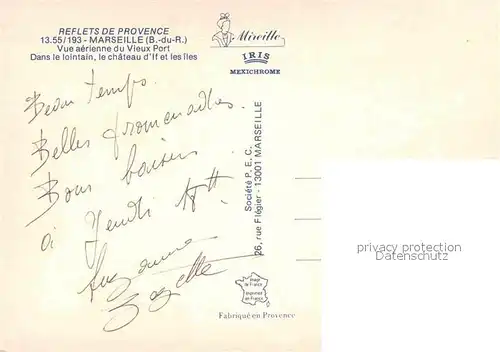 REFLETS DE PROVENCE
13.55/193 - MARSEILLE (B.-du-R.)
Vue aérienne du Vieux Port
Dans le lointain, le château d'If et les îles
Mireille
IRIS
MEXICHROME
Beau temps.
Belles promenades.
Bons baisers
à Jeudi
Suzanne
Société P.E.C.
26, rue Flégier - 13001 MARSEILLE
privacy protection
Datenschutz
Image de France
imprimée en France
Fabriqué en Provence